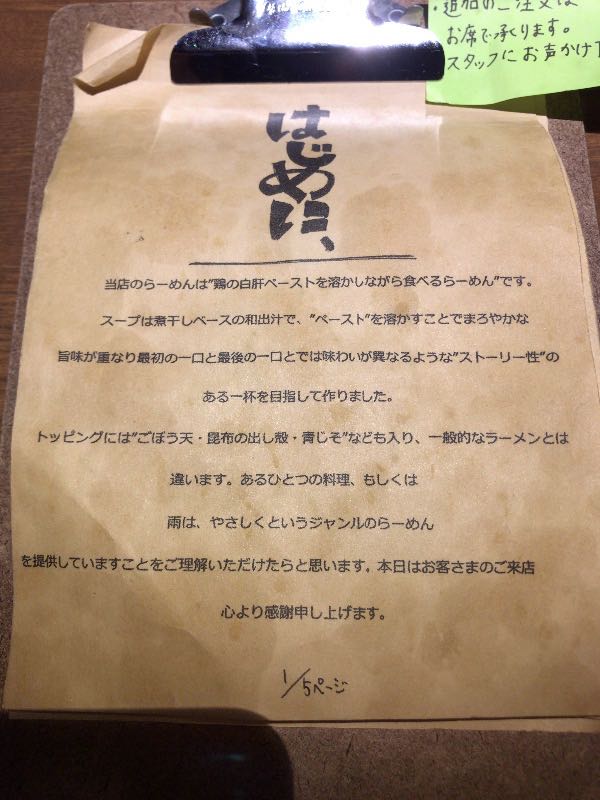 ・追加のご注文は
お席で承ります。
スタッフにお声かけ下
はじめに、
当店のらーめんは"鶏の白肝ペーストを溶かしながら食べるらーめん"です。
スープは煮干しベースの和出汁で、"ペースト"を溶かすことでまろやかな
旨味が重なり最初の一口と最後の一口とでは味わいが異なるような"ストーリー性"の
ある一杯を目指して作りました。
トッピングには"ごぼう天・昆布の出し殻・青じそ"なども入り、一般的なラーメンとは
違います。あるひとつの料理、もしくは
雨は、やさしくというジャンルのらーめん
を提供していますことをご理解いただけたらと思います。本日はお客さまのご来店
心より感謝申し上げます。
1/5ページ